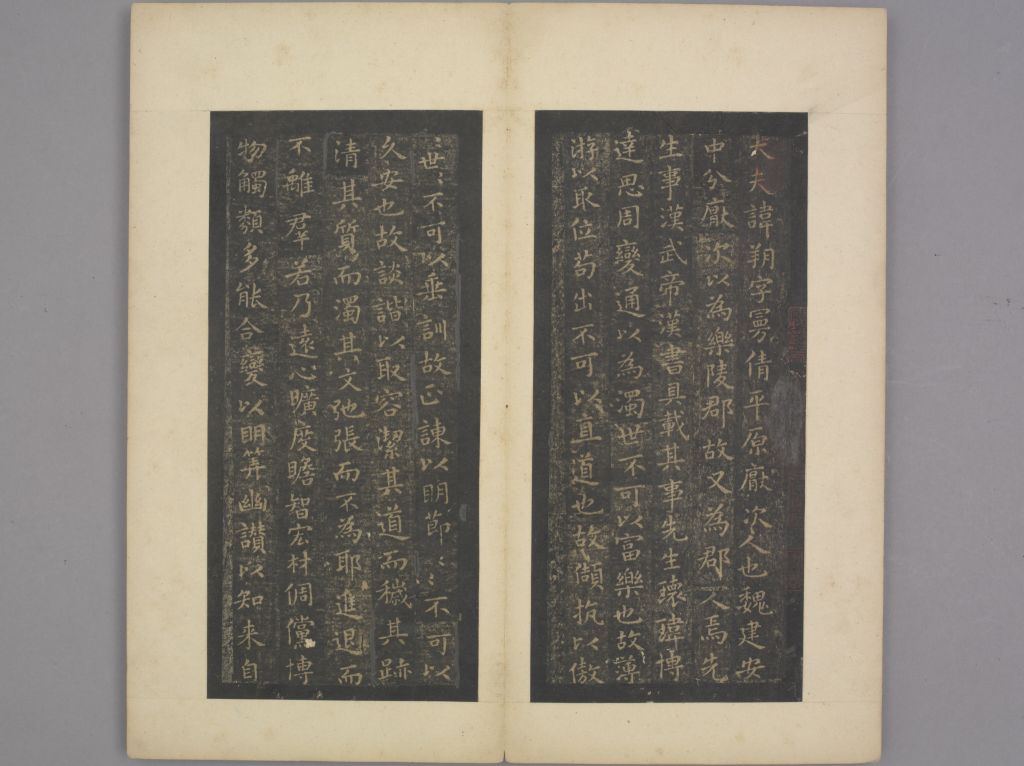 大夫諱朔字曼倩平原厭次人也魏建安
中分厭次以為樂陵郡故又為郡人焉先
生事漢武帝漢書具載其事先生瓌瑋博
達思周變通以為濁世不可以富樂也故薄
游以取位苟出不可以直道也故頡抗以傲
〻世〻不可以垂訓故正諫以明節〻〻不可以
久安也故談諧以取容潔其道而穢其跡
清其質而濁其文弛張而不為耶進退而
不離羣若乃遠心曠度贍智宏材倜儻博
物觸類多能合變以明筭幽讚以知來自